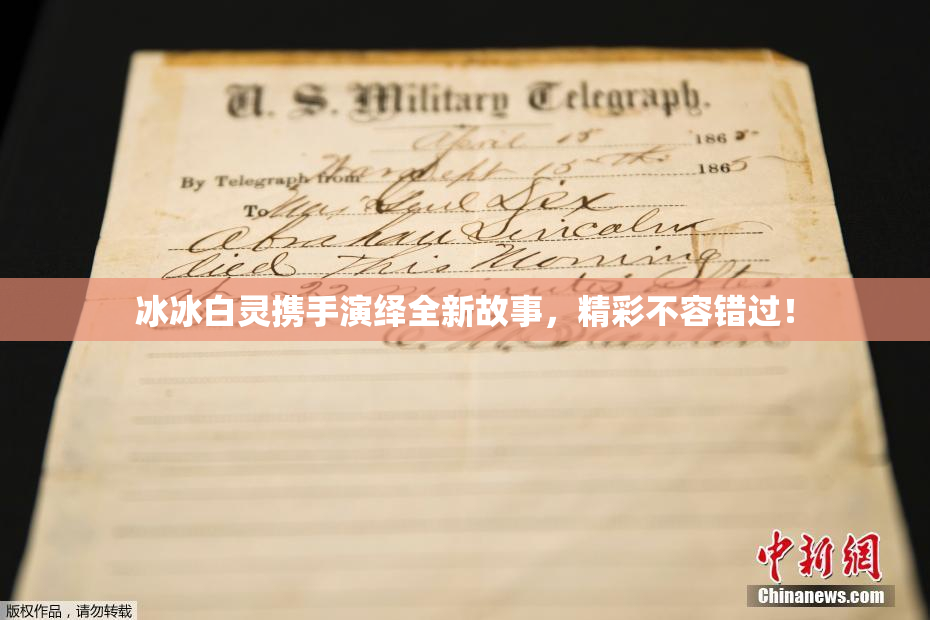 U. S. Military Telegraph.
April 15 1865
By Telegraph from War Dept 15th 1865
To Maj Genl Dix
Abraham Lincoln
died This Morning
at 22 minutes after
冰冰白灵携手演绎全新故事，精彩不容错过！
E. M. Stanton
中新网
Chinanews.com
版权作品，请勿转载